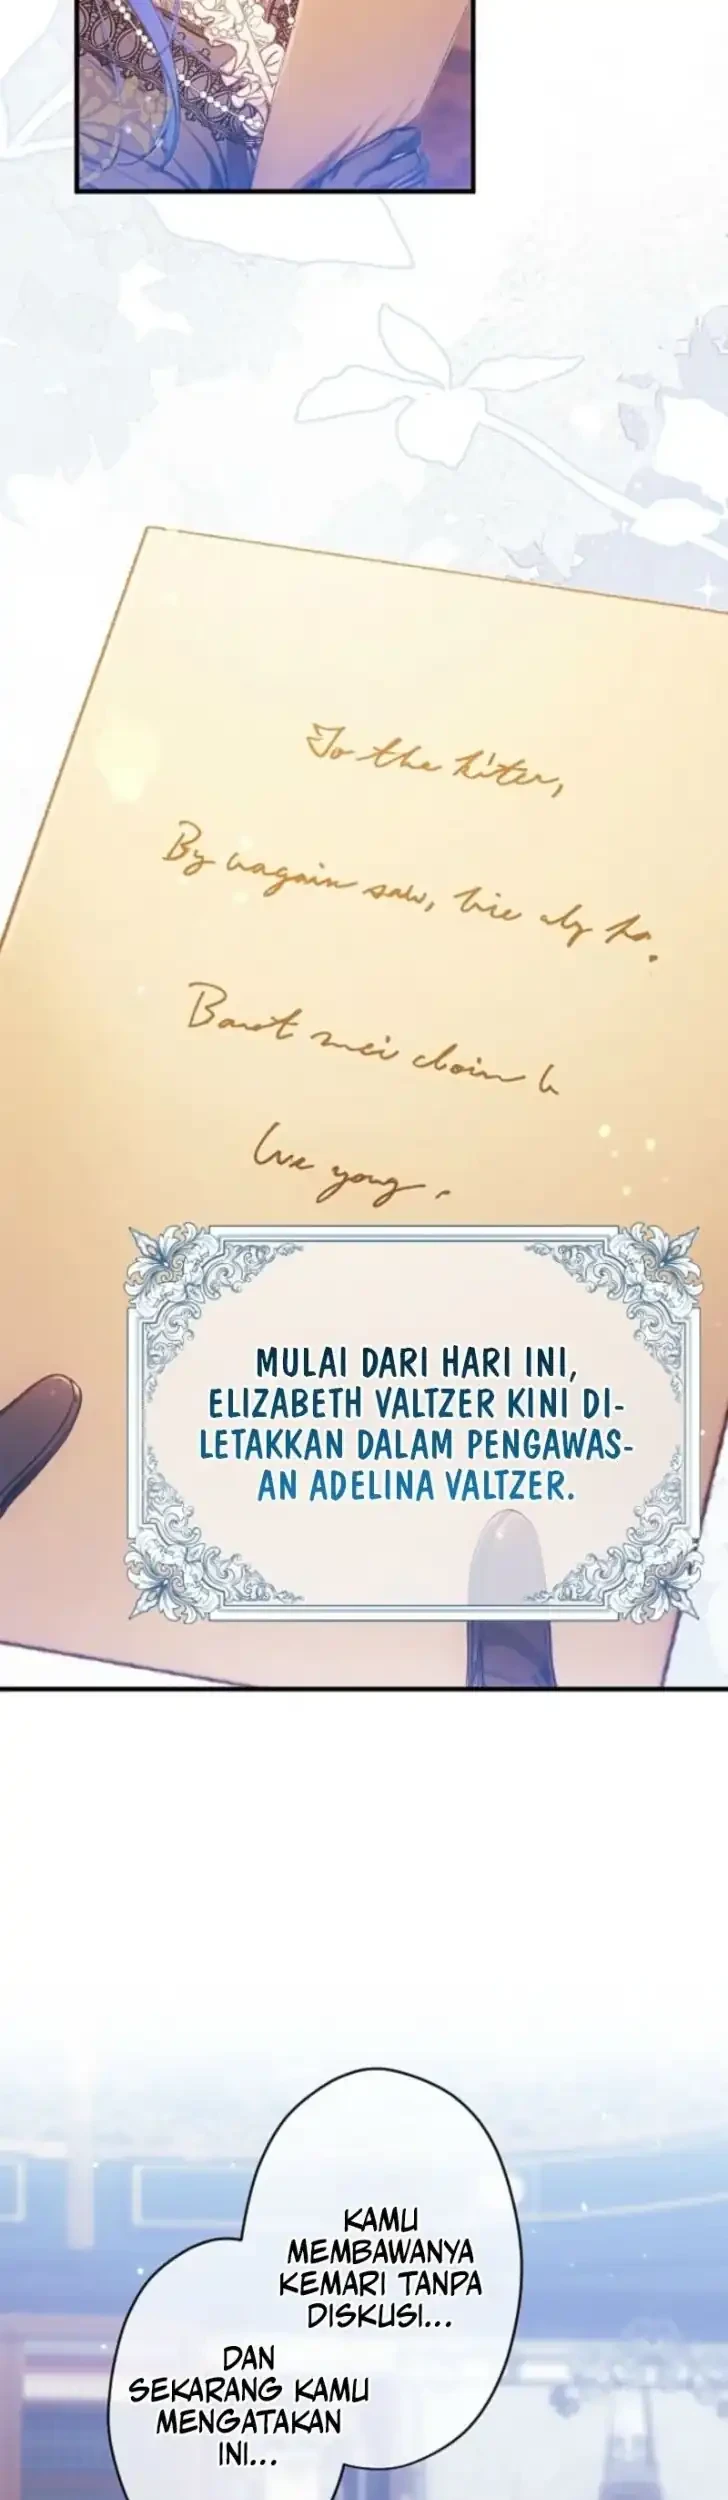 To the kiter,
By
saw,
Baret mei choin h
live yong.
MULAI DARI HARI INI,
ELIZABETH VALTZER KINI DI-
LETAKKAN DALAM PENGAWAS-
AN ADELINA VALTZER.
KAMU
MEMBAWANYA
KEMARI TANPA
DISKUSI...
DAN
SEKARANG KAMU
MENGATAKAN
INI...